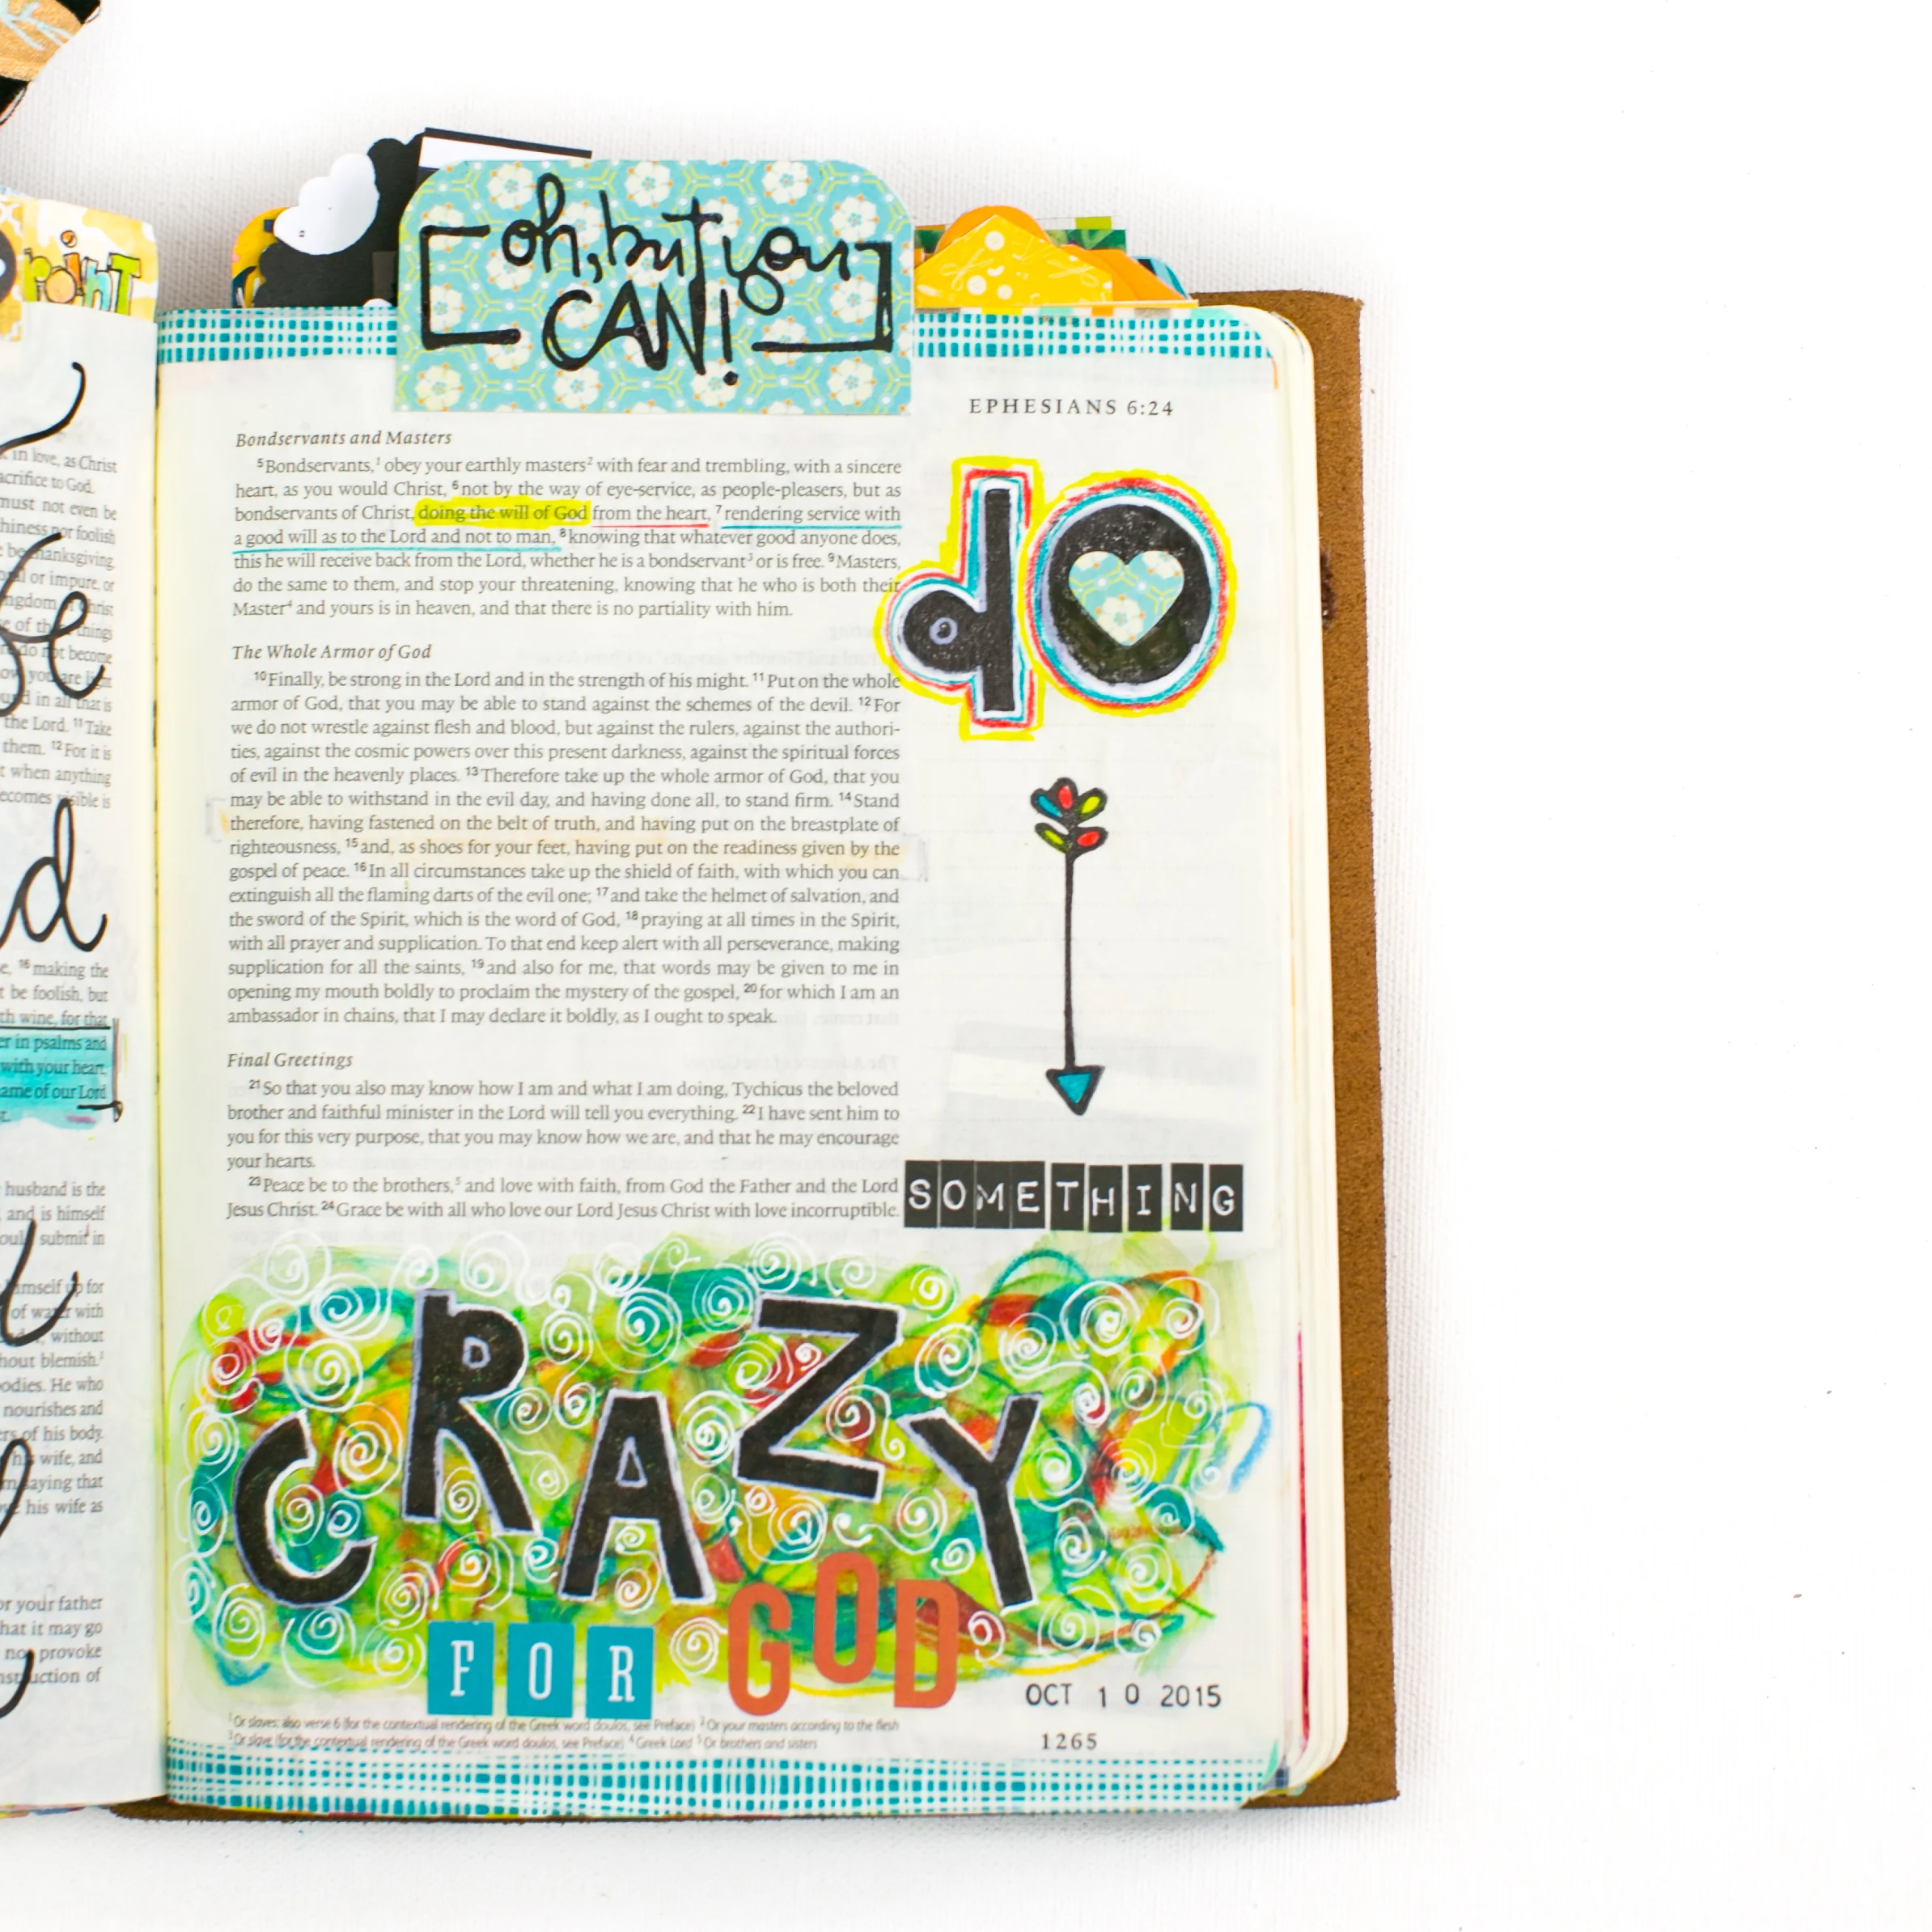 oh, but you
CAN!
EPHESIANS 6:24
Bondservants and Masters
5Bondservants,1 obey your earthly masters2 with fear and trembling, with a sincere
heart, as you would Christ, 6not by the way of eye-service, as people-pleasers, but as
bondservants of Christ, doing the will of God from the heart, 7rendering service with
a good will as to the Lord and not to man, 8knowing that whatever good anyone does,
this he will receive back from the Lord, whether he is a bondservant3 or is free. 9Masters,
do the same to them, and stop your threatening, knowing that he who is both their
Master4 and yours is in heaven, and that there is no partiality with him.
The Whole Armor of God
10Finally, be strong in the Lord and in the strength of his might. 11Put on the whole
armor of God, that you may be able to stand against the schemes of the devil. 12For
we do not wrestle against flesh and blood, but against the rulers, against the authori-
ties, against the cosmic powers over this present darkness, against the spiritual forces
of evil in the heavenly places. 13Therefore take up the whole armor of God, that you
may be able to withstand in the evil day, and having done all, to stand firm. 14Stand
therefore, having fastened on the belt of truth, and having put on the breastplate of
righteousness, 15and, as shoes for your feet, having put on the readiness given by the
gospel of peace. 16In all circumstances take up the shield of faith, with which you can
extinguish all the flaming darts of the evil one; 17and take the helmet of salvation, and
the sword of the Spirit, which is the word of God, 18praying at all times in the Spirit,
with all prayer and supplication. To that end keep alert with all perseverance, making
supplication for all the saints, 19and also for me, that words may be given to me in
opening my mouth boldly to proclaim the mystery of the gospel, 20for which I am an
ambassador in chains, that I may declare it boldly, as I ought to speak.
Final Greetings
21So that you also may know how I am and what I am doing, Tychicus the beloved
brother and faithful minister in the Lord will tell you everything. 22I have sent him to
you for this very purpose, that you may know how we are, and that he may encourage
your hearts.
23Peace be to the brothers,5 and love with faith, from God the Father and the Lord
Jesus Christ. 24Grace be with all who love our Lord Jesus Christ with love incorruptible.
do
SOMETHING
CRAZY
FOR GOD
OCT 10 2015
1Or slaves; also verse 6 (for the contextual rendering of the Greek word doulos, see Preface) 2Or your masters according to the flesh
3Or slave (for the contextual rendering of the Greek word doulos, see Preface) 4Greek Lord 5Or brothers and sisters
1265
in love, as Christ
sacrifice to God.
must not even be
nor foolish
thanksgiving.
or impure, or
do not become
the Lord. 11Take
them. 12For it is
when anything
becomes visible is
16making the
be foolish, but
wine, for that
in psalms and
with your heart,
name of our Lord
husband is the
and is himself
submit in
himself up for
of water with
without
without blemish.
bodies. He who
nourishes and
of his body.
wife, and
saying that
his wife as
or your father
that it may go
provoke
instruction of